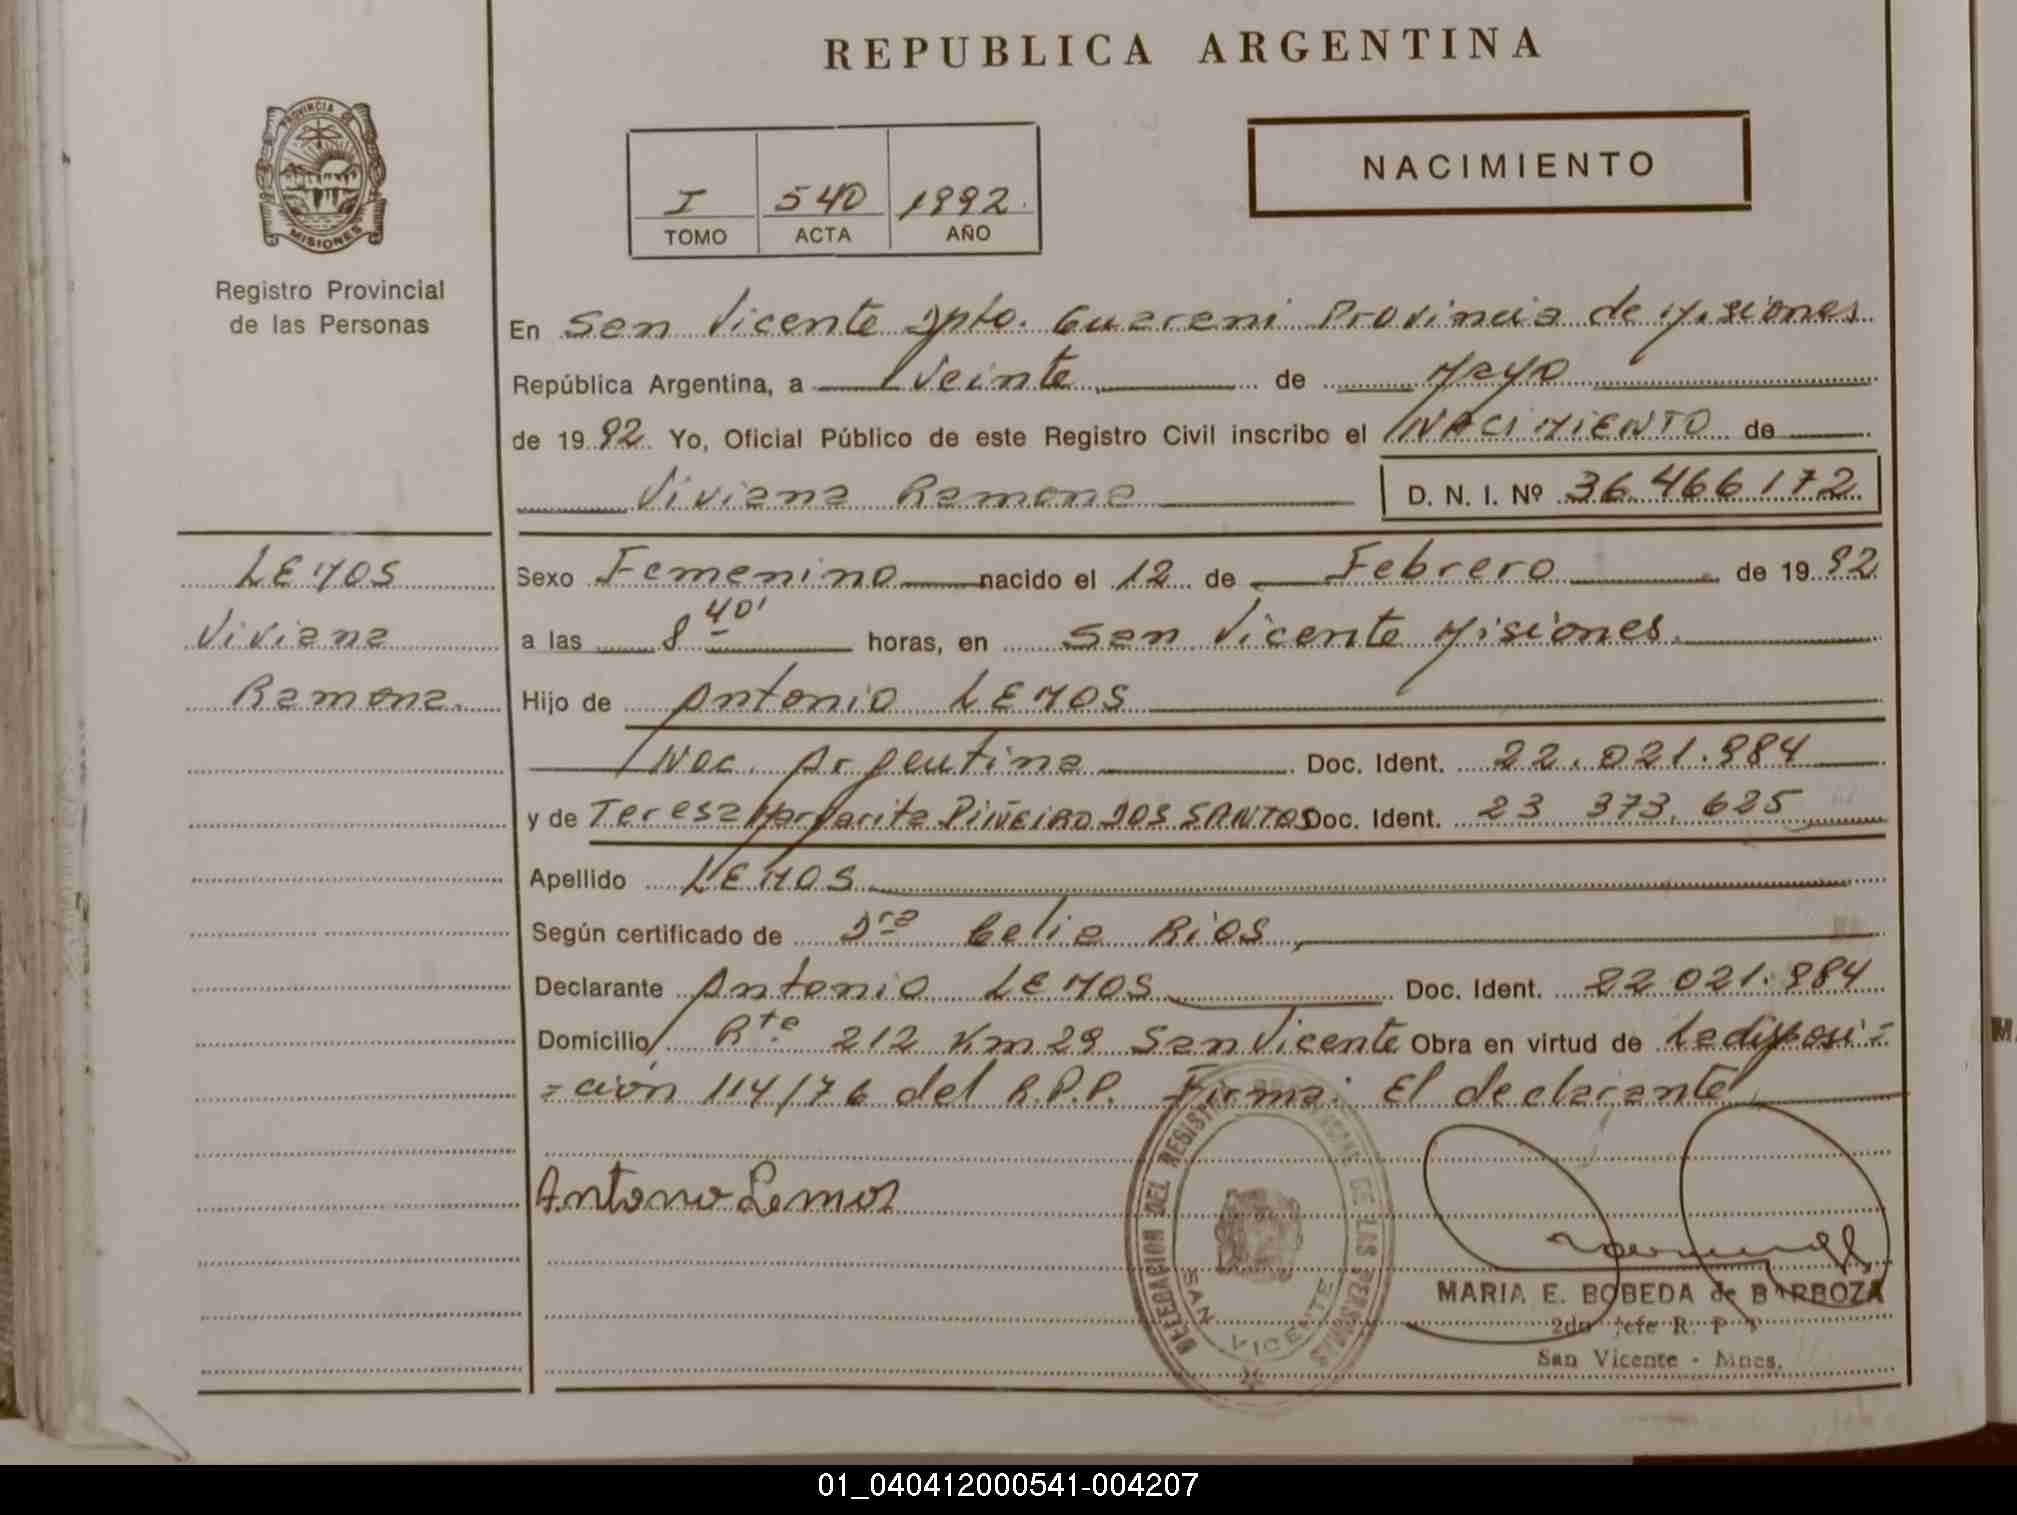 REPUBLICA ARGENTINA
PROVINCIA DE
MISIONES
Registro Provincial
de las Personas
I 540 1992
TOMO ACTA AÑO
NACIMIENTO
En San Vicente Dpto. Guarani Provincia de Misiones
República Argentina, a Veinte de Mayo
de 19 92. Yo, Oficial Público de este Registro Civil inscribo el NACIMIENTO de
Viviana Ramona D. N. I. Nº 36 466 172
LEMOS
Viviana
Ramona.
Sexo Femenino nacido el 12 de Febrero de 19 92
a las 8 40' horas, en San Vicente Misiones.
Hijo de Antonio LEMOS
Nac. Argentina Doc. Ident. 22.021.984
y de Teresa Margarita PIÑEIRO DOS SANTOS Doc. Ident. 23 373.625
Apellido LEMOS
Según certificado de Dra Celia Rios,
Declarante Antonio LEMOS Doc. Ident. 22 021.984
Domicilio Rta. 212 Km 29 San Vicente Obra en virtud de La disposi=
=ción 114/76 del R.P.P. Firma: El declarante
Antonio Lemos
DELEGACION DEL REGISTRO PROVINCIAL DE LAS PERSONAS
SAN VICENTE
MARIA E. BOBEDA de BARBOZA
2do Jefe R. P. P.
San Vicente - Mnes.
01_040412000541-004207